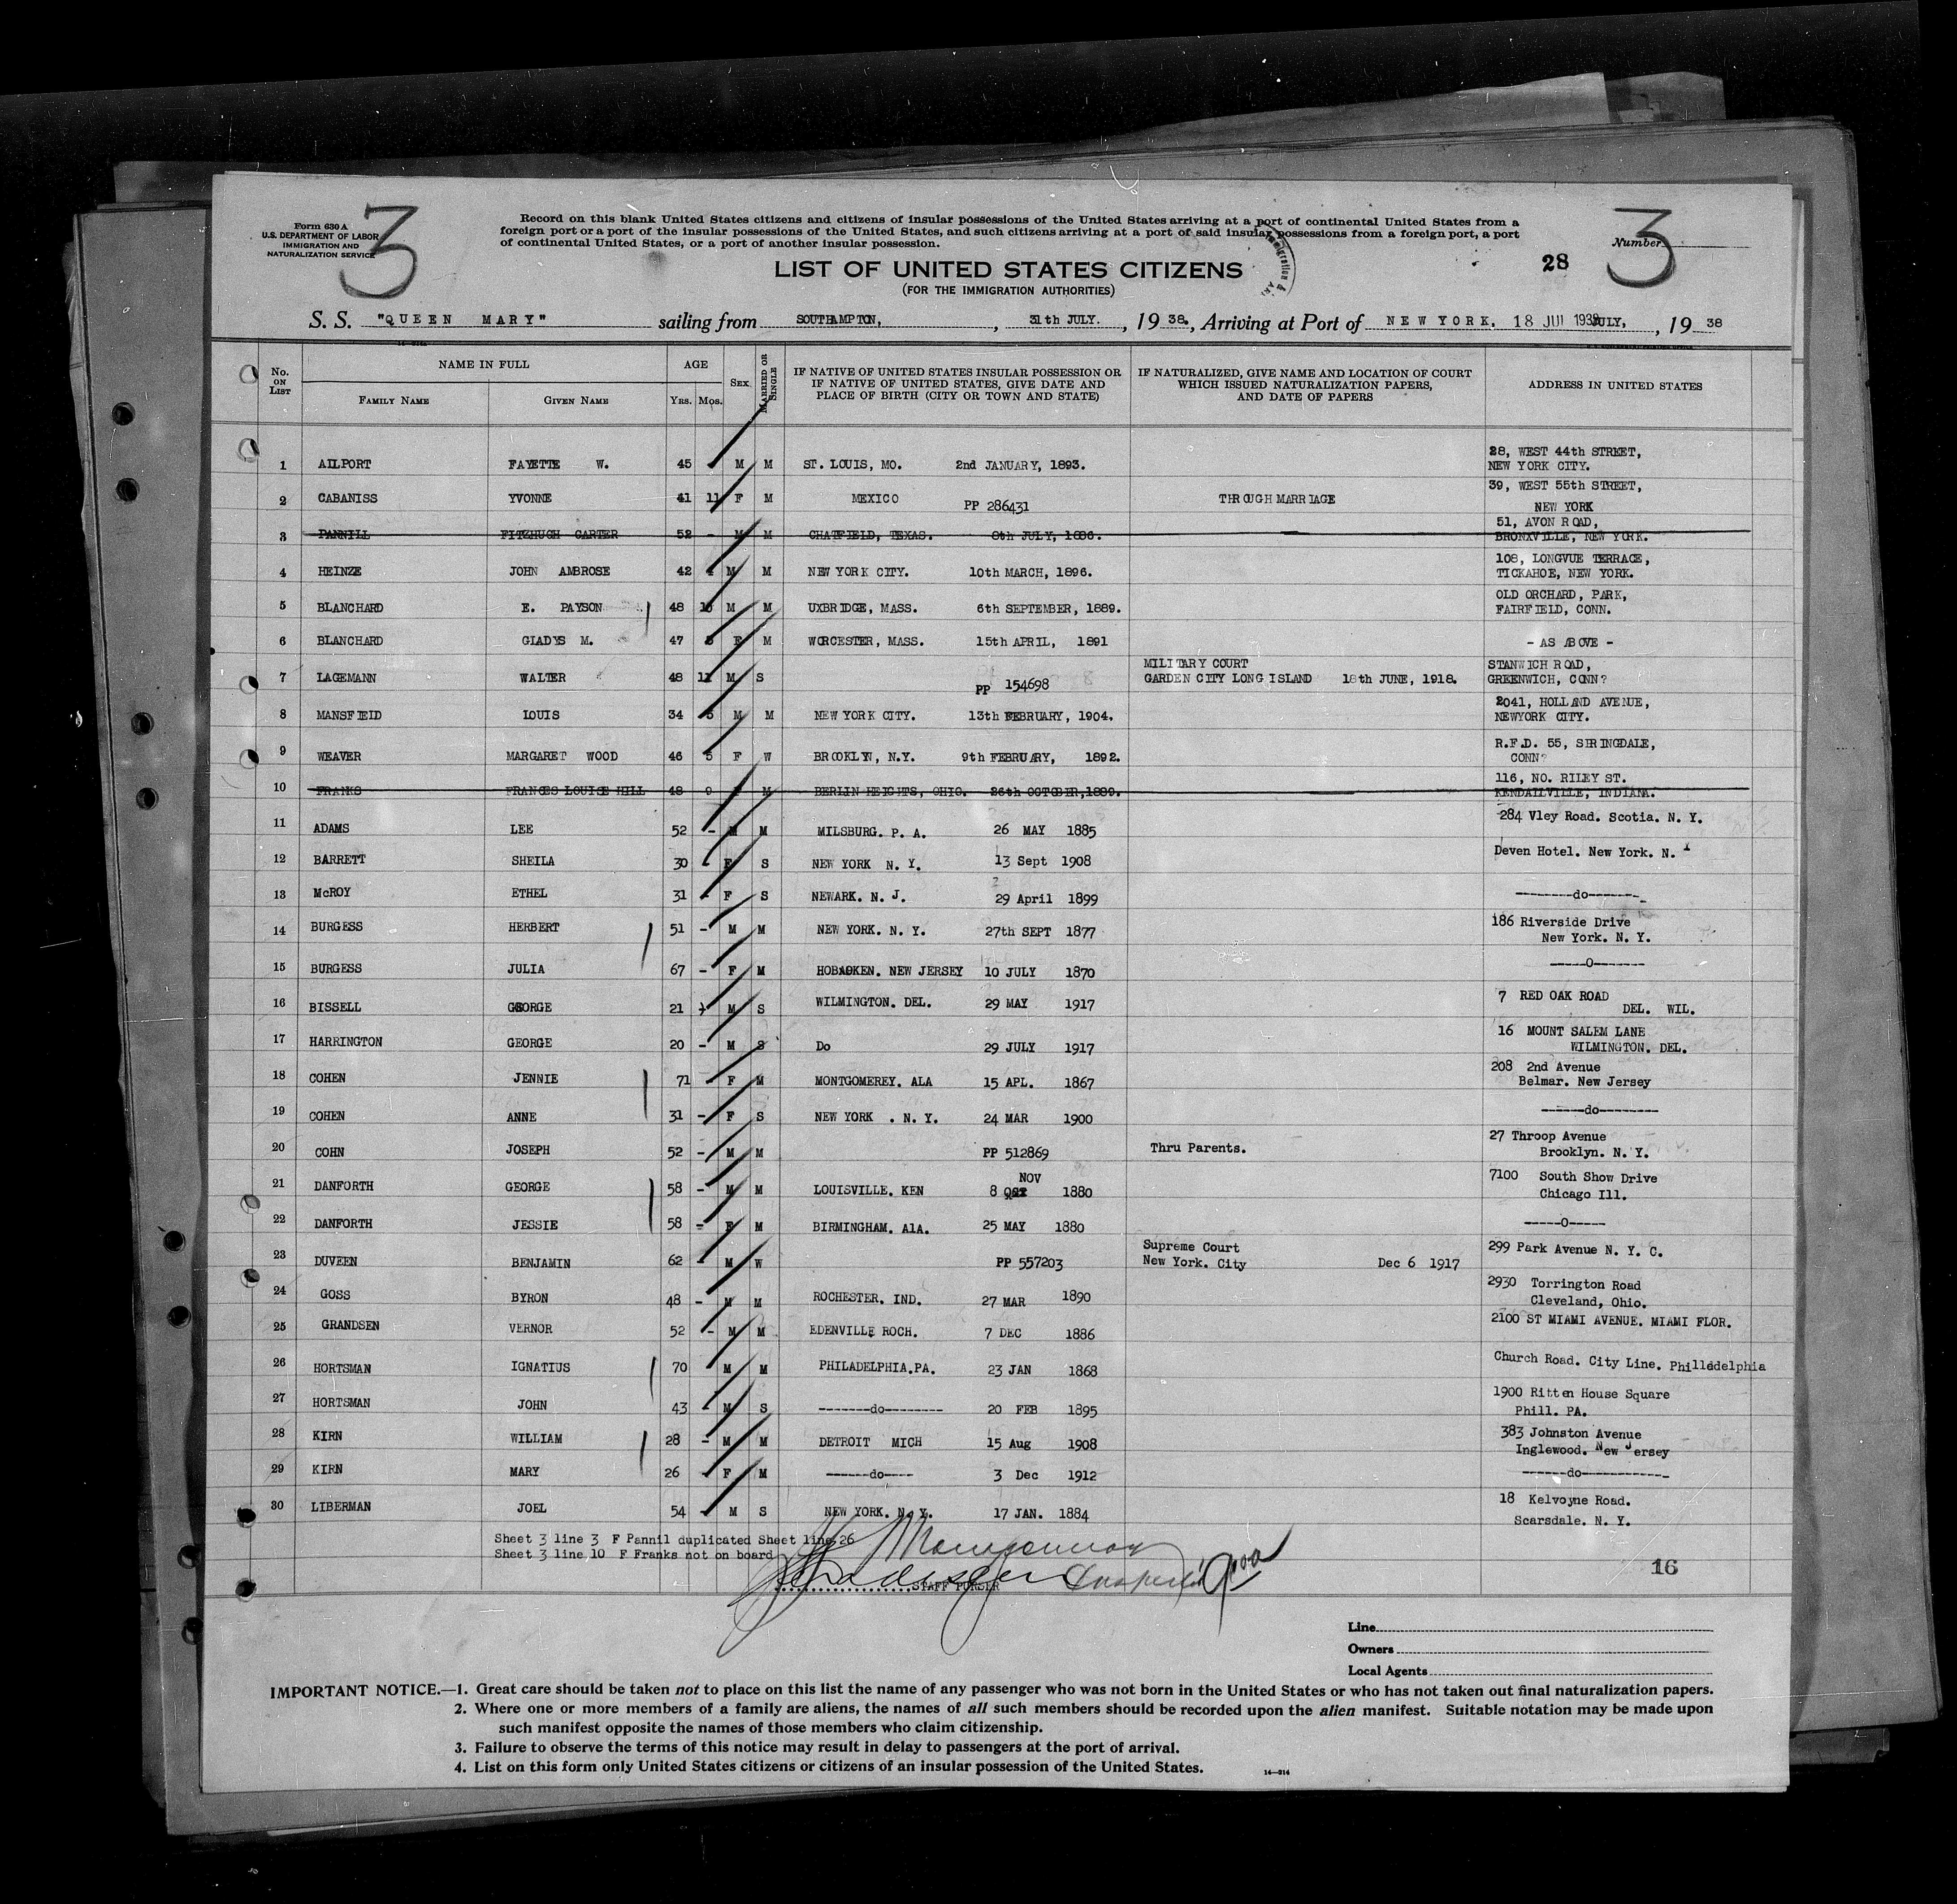 3
Form 630 A
U.S. DEPARTMENT OF LABOR
IMMIGRATION AND
NATURALIZATION SERVICE
Record on this blank United States citizens and citizens of insular possessions of the United States arriving at a port of continental United States from a
foreign port or a port of the insular possessions of the United States, and such citizens arriving at a port of said insular possessions from a foreign port, a port
of continental United States, or a port of another insular possession.
Number 3
28
LIST OF UNITED STATES CITIZENS
(FOR THE IMMIGRATION AUTHORITIES)
S. S. "QUEEN MARY" sailing from SOUTHAMPTON, , 31th JULY. , 19 38., Arriving at Port of NEW YORK, 18 JUL 1938 JULY, , 19 38
No. ON LIST NAME IN FULL AGE SEX MARRIED OR SINGLE IF NATIVE OF UNITED STATES INSULAR POSSESSION OR IF NATIVE OF UNITED STATES, GIVE DATE AND PLACE OF BIRTH (CITY OR TOWN AND STATE) IF NATURALIZED, GIVE NAME AND LOCATION OF COURT WHICH ISSUED NATURALIZATION PAPERS, AND DATE OF PAPERS ADDRESS IN UNITED STATES
FAMILY NAME GIVEN NAME YRS. MOS.
1 AILPORT FAYETTE W. 45 M M ST. LOUIS, MO. 2nd JANUARY, 1893. 28, WEST 44th STREET,
NEW YORK CITY.
2 CABANISS YVONNE 41 11 F M MEXICO PP 286431 THROUGH MARRIAGE 39, WEST 55th STREET,
NEW YORK
3 PANNILL FITZHUGH CARTER 52 - M M CHATFIELD, TEXAS. 8th JULY, 1886. 51, AVON ROAD,
BRONXVILLE, NEW YORK.
4 HEINZE JOHN AMBROSE 42 4 M M NEW YORK CITY. 10th MARCH, 1896. 108, LONGVUE TERRACE,
TICKAHOE, NEW YORK.
5 BLANCHARD E. PAYSON 48 10 M M UXBRIDGE, MASS. 6th SEPTEMBER, 1889. OLD ORCHARD, PARK,
FAIRFIELD, CONN.
6 BLANCHARD GLADYS M. 47 3 F M WORCESTER, MASS. 15th APRIL, 1891 - AS ABOVE -
7 LAGEMANN WALTER 48 11 M S PP 154698 MILITARY COURT
GARDEN CITY LONG ISLAND 18th JUNE, 1918. STANWICH ROAD,
GREENWICH, CONN?
8 MANSFIELD LOUIS 34 5 M M NEW YORK CITY. 13th FEBRUARY, 1904. 2041, HOLLAND AVENUE,
NEWYORK CITY.
9 WEAVER MARGARET WOOD 46 5 F W BROOKLYN, N.Y. 9th FEBRUARY, 1892. R.F.D. 55, SPRINGDALE,
CONN?
10 FRANKS FRANCES LOUISE HILL 48 9 F M BERLIN HEIGHTS, OHIO. 26th OCTOBER, 1889. 116, NO. RILEY ST.
KENDALLVILLE, INDIANA.
11 ADAMS LEE 52 - M M MILSBURG. P. A. 26 MAY 1885 284 Vley Road. Scotia. N. Y.
12 BARRETT SHEILA 30 - F S NEW YORK N. Y. 13 Sept 1908 Deven Hotel. New York. N. Y
13 McROY ETHEL 31 - F S NEWARK. N. J. 29 April 1899 --------do--------
14 BURGESS HERBERT 51 - M M NEW YORK. N. Y. 27th SEPT 1877 186 Riverside Drive
New York. N. Y.
15 BURGESS JULIA 67 - F M HOBAOKEN. NEW JERSEY 10 JULY 1870 -----O-------
16 BISSELL GEORGE 21 M S WILMINGTON. DEL. 29 MAY 1917 7 RED OAK ROAD
DEL. WIL.
17 HARRINGTON GEORGE 20 - M S Do 29 JULY 1917 16 MOUNT SALEM LANE
WILMINGTON. DEL.
18 COHEN JENNIE 71 - F M MONTGOMEREY. ALA 15 APL. 1867 208 2nd Avenue
Belmar. New Jersey
19 COHEN ANNE 31 - F S NEW YORK . N. Y. 24 MAR 1900 ------do--------
20 COHN JOSEPH 52 - M M PP 512869 Thru Parents. 27 Throop Avenue
Brooklyn. N. Y.
21 DANFORTH GEORGE 58 - M M LOUISVILLE. KEN 8 OCT NOV 1880 7100 South Show Drive
Chicago Ill.
22 DANFORTH JESSIE 58 - F M BIRMINGHAM. AlA. 25 MAY 1880 -----O-----
23 DUVEEN BENJAMIN 62 - M W PP 557203 Supreme Court
New York. City Dec 6 1917 299 Park Avenue N. Y. C.
24 GOSS BYRON 48 - M M ROCHESTER. IND. 27 MAR 1890 2930 Torrington Road
Cleveland, Ohio.
25 GRANDSEN VERNOR 52 - M M EDENVILLE ROCH. 7 DEC 1886 2100 ST MIAMI AVENUE. MIAMI FLOR.
26 HORTSMAN IGNATIUS 70 M M PHILADELPHIA.PA. 23 JAN 1868 Church Road. City Line. Philledelphia
27 HORTSMAN JOHN 43 - M S -------do-------- 20 FEB 1895 1900 Ritten House Square
Phill. PA.
28 KIRN WILLIAM 28 - M M DETROIT MICH 15 Aug 1908 383 Johnston Avenue
Inglewood. New Jersey
29 KIRN MARY 26 - F M ------do---- 3 Dec 1912 ------do-----------
30 LIBERMAN JOEL 54 - M S NEW YORK. N. Y. 17 JAN. 1884 18 Kelvoyne Road.
Scarsdale. N. Y.
Sheet 3 line 3 F Pannil duplicated Sheet line 26
Sheet 3 line 10 F Franks not on board
STAFF PURSER
16
Line
Owners
Local Agents
IMPORTANT NOTICE.—1. Great care should be taken not to place on this list the name of any passenger who was not born in the United States or who has not taken out final naturalization papers.
2. Where one or more members of a family are aliens, the names of all such members should be recorded upon the alien manifest. Suitable notation may be made upon
such manifest opposite the names of those members who claim citizenship.
3. Failure to observe the terms of this notice may result in delay to passengers at the port of arrival.
4. List on this form only United States citizens or citizens of an insular possession of the United States.
14—314